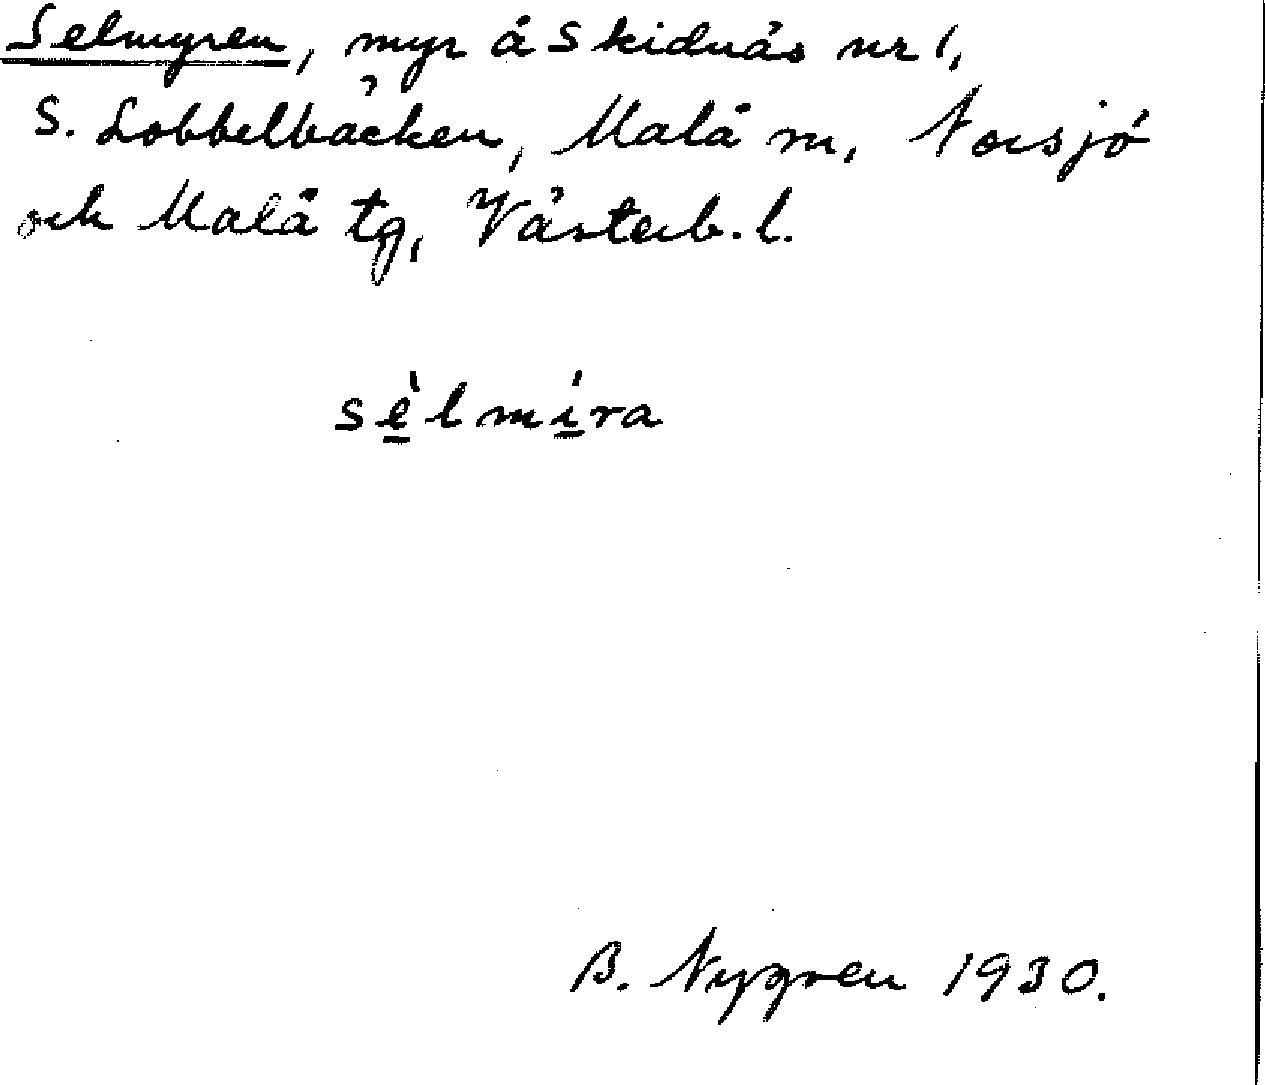 Selmyren, myr å Skidnäs nr 1,
S. Lobbelbäcken, Malå sn, Norsjö
och Malå tg, Västerb. l.
sèlmíra
B. Nygren 1930.